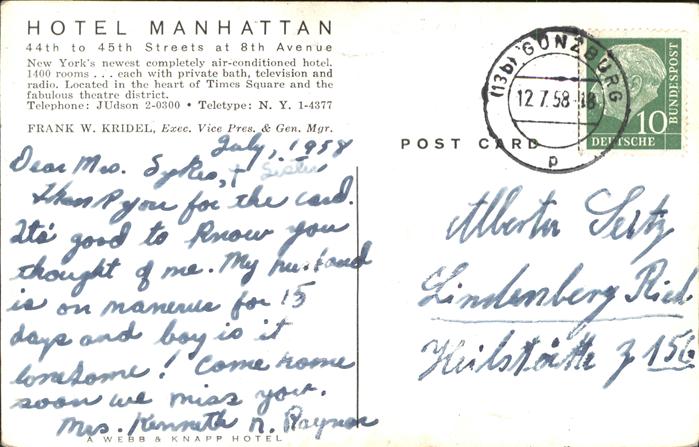 HOTEL MANHATTAN
44th to 45th Streets at 8th Avenue
New York's newest completely air-conditioned hotel.
1400 rooms . . . each with private bath, television and
radio. Located in the heart of Times Square and the
fabulous theatre district.
Telephone: JUdson 2-0300 • Teletype: N. Y. 1-4377
FRANK W. KRIDEL, Exec. Vice Pres. & Gen. Mgr.
July, 1958
Dear Mrs. Sykes, + Sister
Thank you for the card.
Its good to know you
thought of me. My husband
is on manerus for 15
days and boy is it
lonesome! Come home
soon we miss you.
Mrs. Kenneth N. Raynor
A WEBB & KNAPP HOTEL
POST CARD
(13b) GÜNZBURG
12.7.58-18
p
10
DEUTSCHE
BUNDESPOST
Alberta Seitz
Lindenberg Ried
Heilstätte Z 156